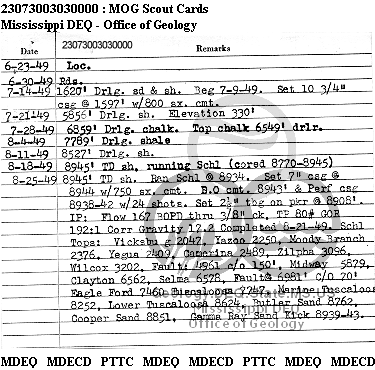 23073003030000 : MOG Scout Cards
Mississippi DEQ - Office of Geology
23073003030000
Date Remarks
6-23-49 Loc.
6-30-49 Rds.
7-14-49 1620' Drlg. sd & sh. Beg 7-9-49. Set 10 3/4"
csg @ 1597' w/800 sx. cmt.
7-21-49 5856' Drlg. sh. Elevation 330'
7-28-49 6859' Drlg. chalk. Top chalk 6549' drlr.
8-4-49 7789' Drlg. shale
8-11-49 8527' Drlg. sh.
8-18-49 8945' TD sh. running Schl (cored 8770-8945)
8-25-49 8945' TD sh. Ran Schl @ 8934. Set 7" csg @
8944 w/750 sx. cmt. B.O cmt. 8943' & Perf csg
8938-42 w/24 shots. Set 2½" tbg on pkr @ 8908'.
IP: Flow 167 BOPD thru 3/8" ck. TP 80# GOR
192:1 Corr Gravity 17.2 Completed 8-21-49. Schl
Tops: Vicksburg 2042, Yazoo 2250, Moody Branch
2376, Yegua 2409, Camerina 2489, Zilpha 3096,
Wilcox 3202, Faulti 4961 c/o 150', Midway 5879,
Clayton 6562, Selma 6578, Fault 6981' c/o 20'
Eagle Ford 7460 Tuscaloosa 7747, Marine Tuscaloosa
8252, Lower Tuscaloosa 8624, Butler Sand 8762,
Cooper Sand 8851. Gamma Ray Sand Kick 8939-43.
Mississippi DEQ
Office of Geology
MDEQ MDECD PTTC MDEQ MDECD PTTC MDEQ MDECD